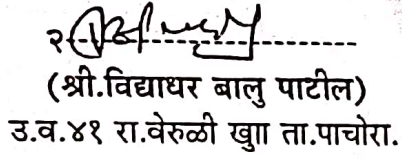 २
(श्री.विद्याधर बालु पाटील)
उ.व.४१ रा.वेरुळी खुाा ता.पाचोरा.